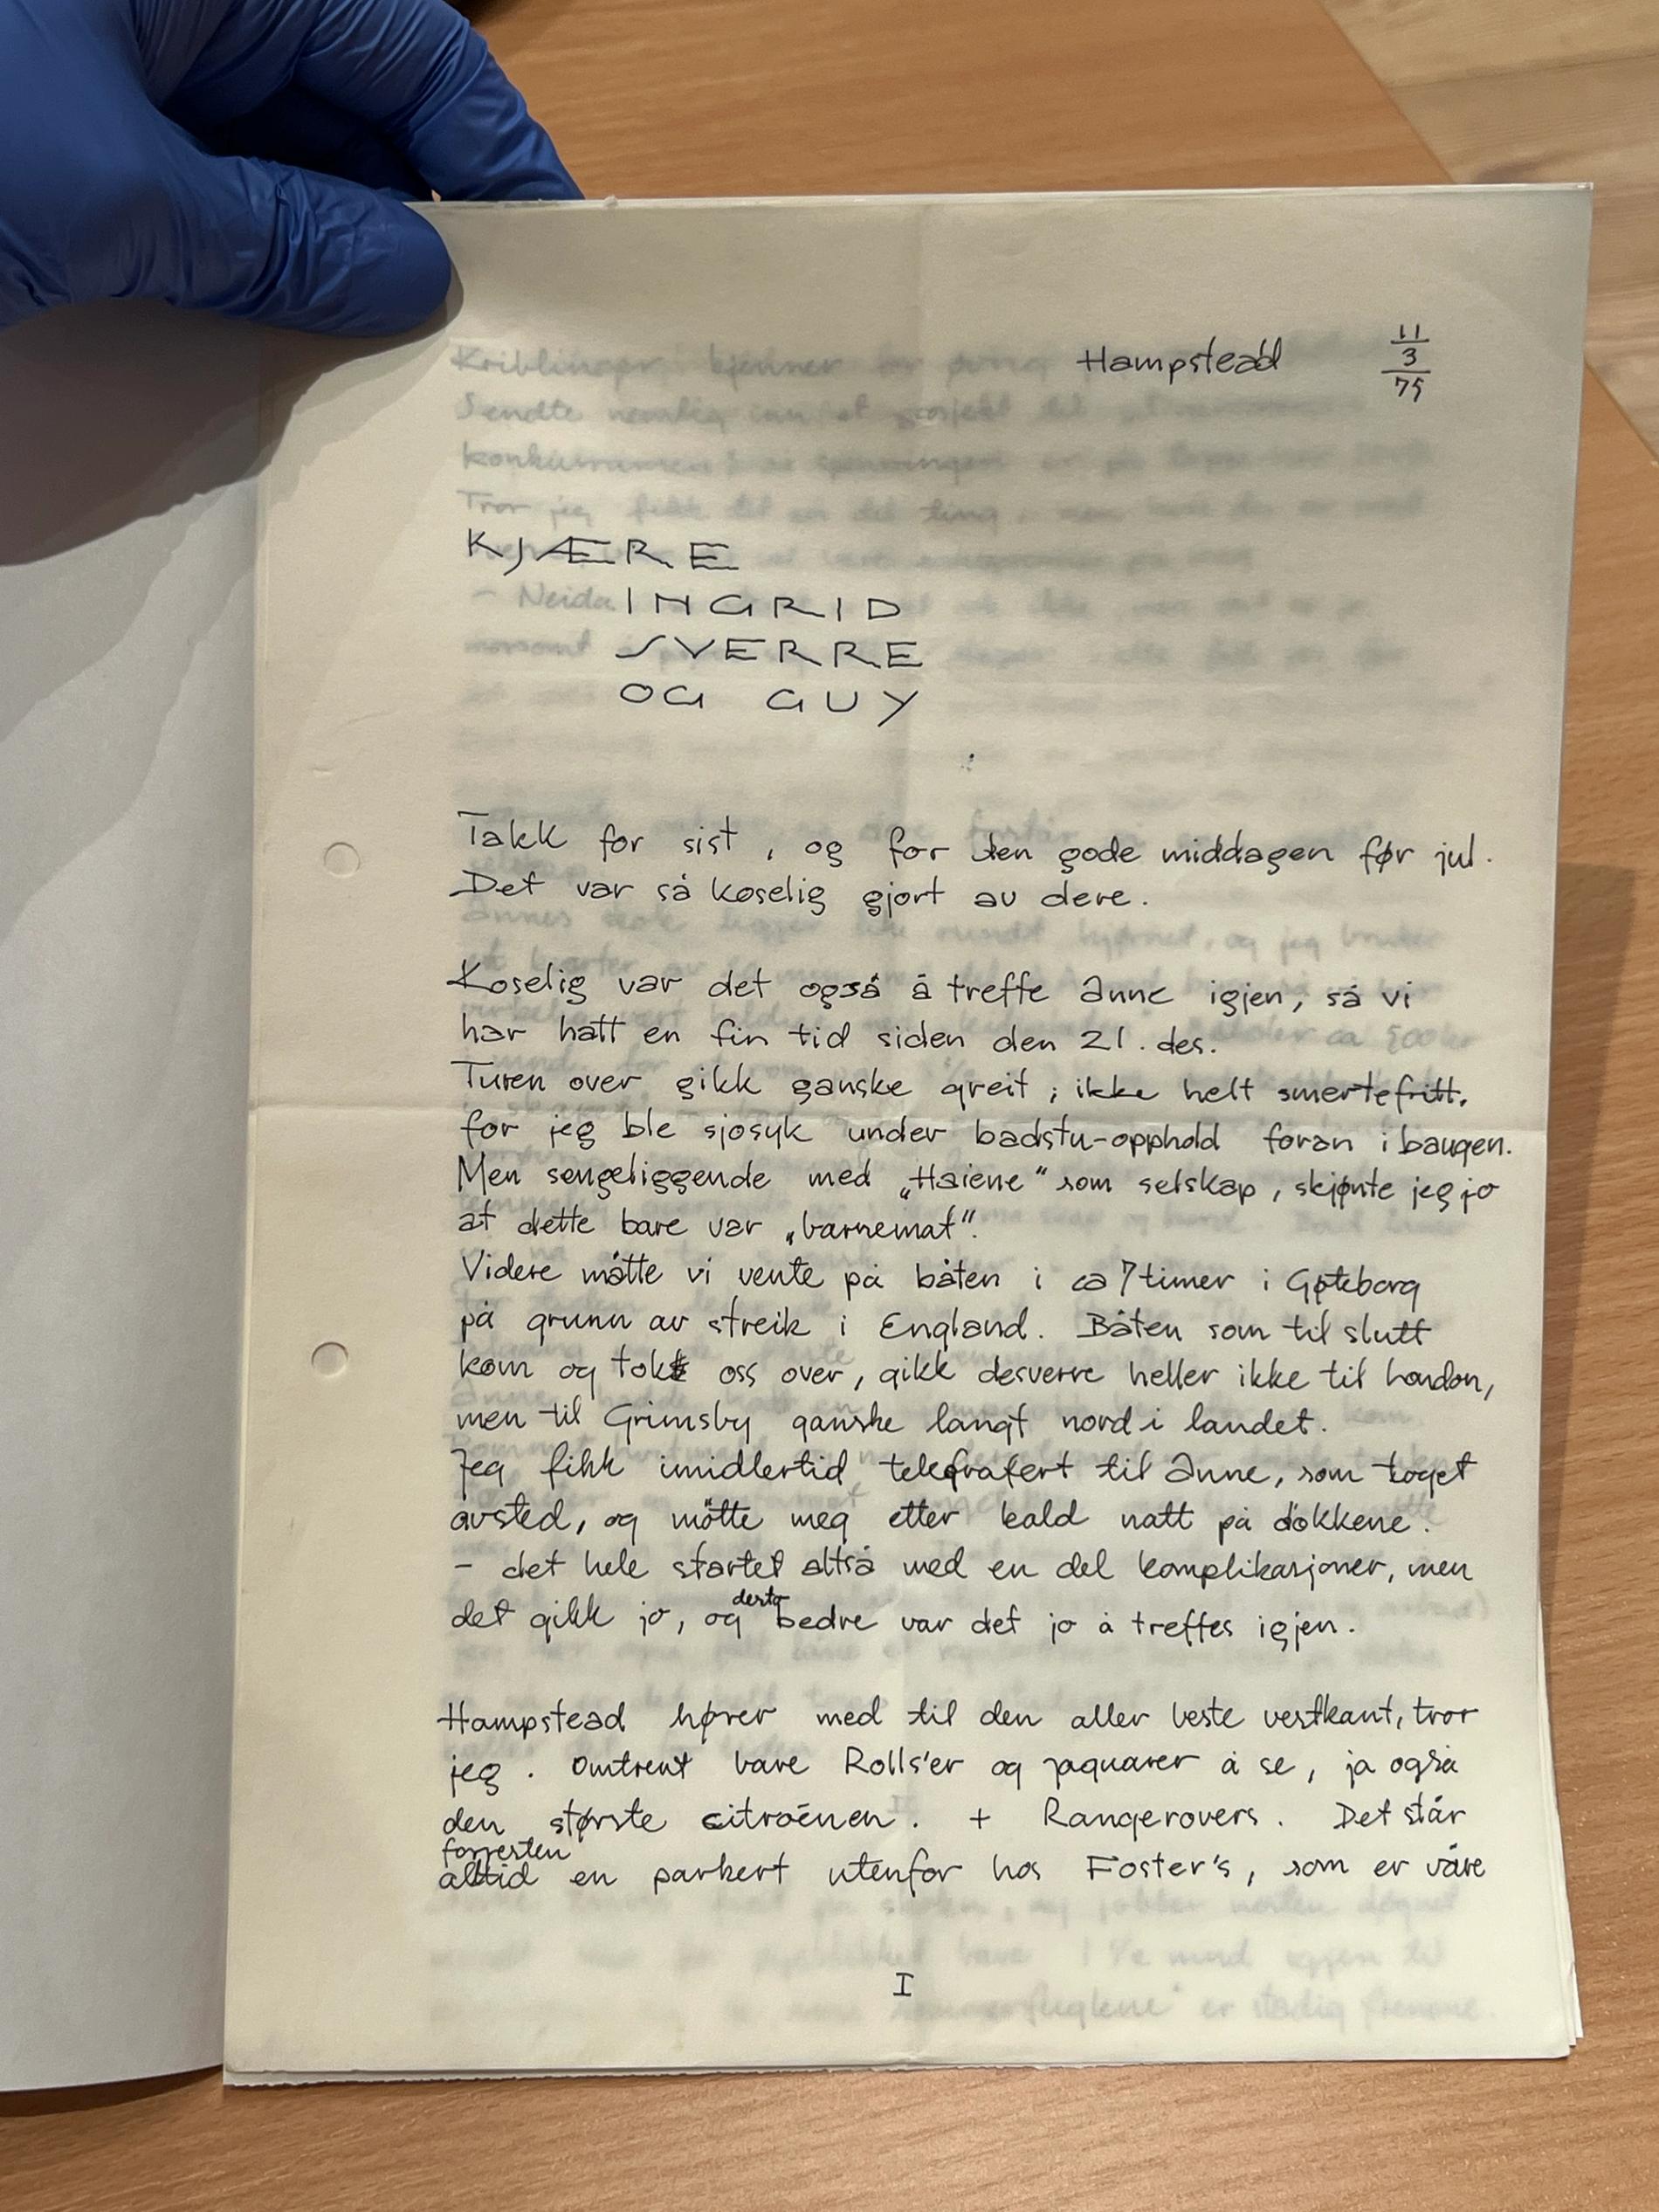 Hampstead 11/3/75
KJÆRE
INGRID
SVERRE
OG GUY
Takk for sist, og for den gode middagen før jul.
Det var så koselig gjort av dere.
Koselig var det også å treffe Anne igjen, så vi
har hatt en fin tid siden den 21. des.
Turen over gikk ganske greit; ikke helt smertefritt,
for jeg ble sjøsyk under badstu-opphold foran i baugen.
Men sengeliggende med „Haiene" som selskap, skjønte jeg jo
at dette bare var „barnemat".
Videre måtte vi vente på båten i ca 7 timer i Gøteborg
på grunn av streik i England. Båten som til slutt
kom og tok oss over, gikk desverre heller ikke til London,
men til Grimsby ganske langt nord i landet.
Jeg fikk imidlertid telegrafert til Anne, som toget
avsted, og møtte meg etter kald natt på dokkene.
- det hele startet altså med en del komplikasjoner, men
det gikk jo, og desto bedre var det jo å treffes igjen.
Hampstead hører med til den aller beste vestkant, tror
jeg. Omtrent bare Rolls'er og jaguarer å se, ja også
den største citroënen. + Rangerovers. Det står
forresten
alltid en parkert utenfor hos Foster's, som er våre
I